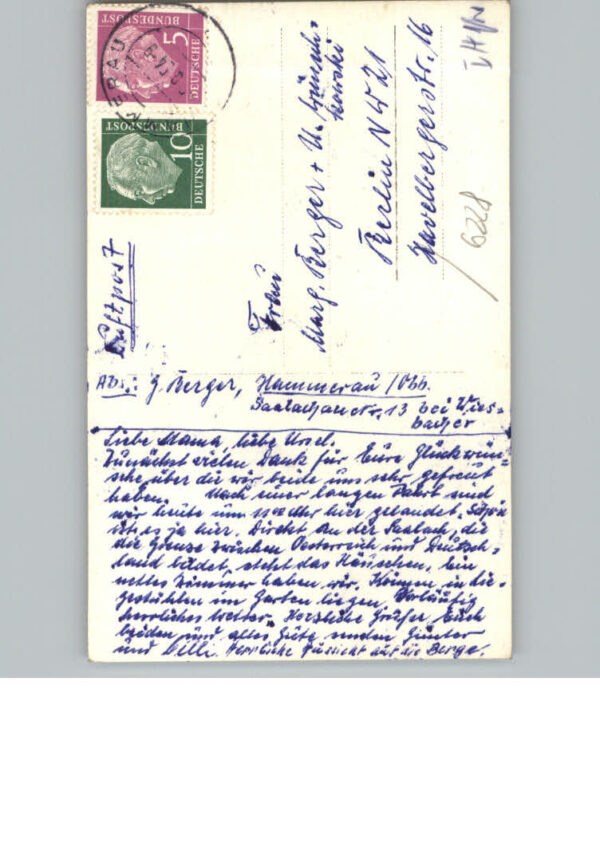 DEUTSCHE
BUNDESPOST
5
DEUTSCHE
BUNDESPOST
10
ERAU
Luftpost
Frau
Marg. Berger + U.
Berlin NW 21
Havelbergerstr. 16
6228
Abs.: G. Berger, Hammerau/Obb.
Saalachaustr. 13 bei Wies-
bacher
Liebe Mama, liebe Ursel.
Zunächst vielen Dank für Eure Glückwün-
sche über die wir beide uns sehr gefreut
haben. Nach einer langen Fahrt sind
wir heute um Uhr hier gelandet. Schön
ist es ja hier. Direkt an der Saalach, die
die Grenze zwischen Oesterreich und Deutsch-
land bildet, steht das Häuschen. Ein
nettes Zimmer haben wir. Können in Lie-
gestühlen im Garten liegen. Vorläufig
herrliches Wetter. Herzliche Grüße Euch
beiden und alles Gute senden Günter
und Elli. Herrliche Aussicht auf die Berge.